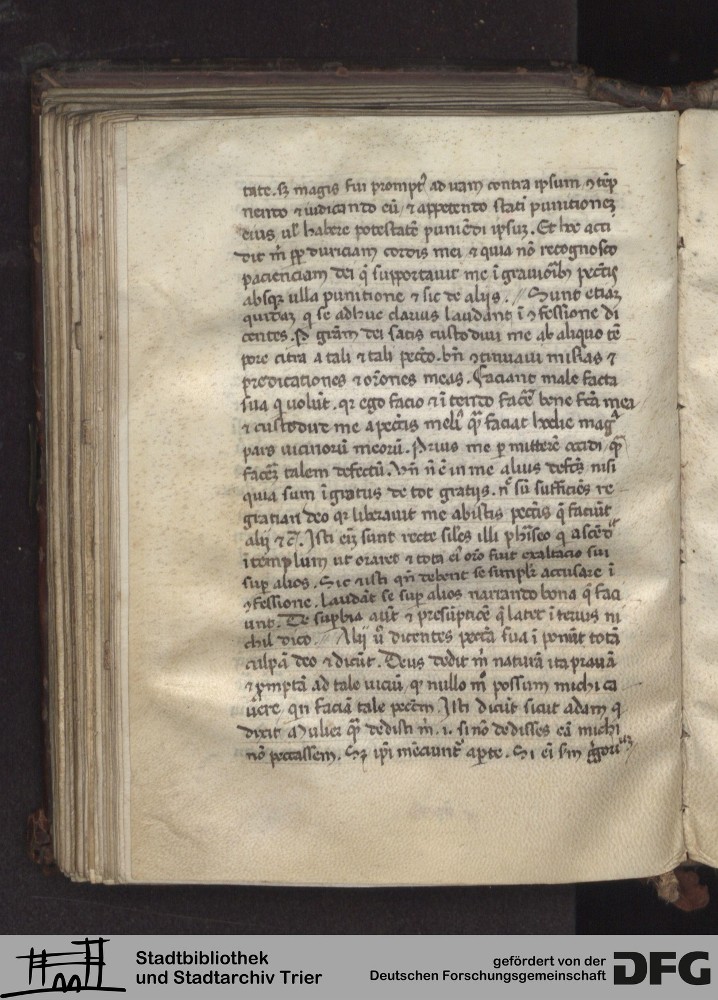 tate. sꝫ magis fui prompt᷒ ad iram contra ipsum ⁊ tēp
nendo ⁊ iudicando eū ⁊ appetendo statī punitionez
eius ul' habere potestatē puniēdi ipsuꝫ. Et hoc acci
dit m̄ ꝓpͭ duriciam cordis mei ⁊ quia nō recognosco
pacienciam dei q̄ supportauit me ī grauiorib᷒ pcc̄tis
absqꝫ ulla punitione ⁊ sic de aliis. // Sunt etiaꝫ
quidaꝫ q̄ se adhuc clarius laudant ī ꝯfessione di
centes. Ꝑ grām dei satis custodiui me ab aliquo tē
pore citra a tali ⁊ tali pcc̄to. bn̄ ꝯtinuaui missas ⁊
predicationes ⁊ orōnes meas. faciant male facta
sua q̄ uolūt. qr ego facio ⁊ ītendo facē bene fc̄a mea
⁊ custodire me a pcc̄tis meli᷒ qͣ faciat hodie mag᷒
pars uicinorū meorū. Prius me ꝑmitterē occidi qͣ
facerē talem defectū. Vn̄ n̄ ē in me alius defc̄tꝰ nisi
quia sum īgratus de tot gratiis. n̄ sū sufficiēs re
gratiari deo qr liberauit me ab istis pcc̄tis q̄ faciūt
alij ⁊c̄. Isti eīꝫ sunt recte siles illi phīseo q̄ ascēdit
ī templum ut oraret ⁊ tota eī orō fuit exaltacio sui
suꝑ alios. Sic ⁊ isti qn̄ debent se simplr accusare ī
ꝯfessione. laudāt se suꝑ alios narrando bona q̄ faci
unt. De suꝑbia aūt ⁊ presūptiōe q̄ latet ī teruis ni
chil dico. // Alij ū dicentes pcc̄ta sua ī ponūt totā
culpā deo ⁊ dicūt. Deus dedit m̄ naturā ita prauā
⁊ ꝓmptā ad tale uiciū qͩ nullo mͦ possum michi ca
uere. qn faciā tale pcc̄tm Isti dicūt sicut adam q̄
dixit Mulier qͣ dedisti m̄. .i. si nō dedisses eā michi
nō peccassem. Sꝫ ip̄i mēciunt᷒ aꝑte. Si eī sm̄ ggoriuꝫ

Stadtbibliothek
und Stadtarchiv Trier
gefördert von der
Deutschen Forschungsgemeinschaft
DFG